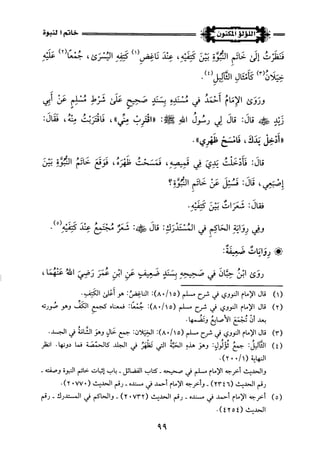 اللؤلؤ المكنون
خاتم النبوة
فَنَظَرْتُ إِلَى خَاتَمِ النُّبُوَّةِ بَيْنَ كَتِفَيْهِ، عِنْدَ نَاغِضِ(١) كَتِفِهِ الْيُسْرَى، جُمْعًا(٢) عَلَيْهِ
خِيلَانٌ(٣) كَأَمْثَالِ الثَّآلِيلِ(٤).
وَرَوَى الإِمَامُ أَحْمَدُ فِي مُسْنَدِهِ بِسَنَدٍ صَحِيحٍ عَلَى شَرْطِ مُسْلِمٍ عَنْ أَبِي
زَيْدٍ ﷺ قَالَ: قَالَ لِي رَسُولُ اللهِ ﷺ: «اقْتَرِبْ مِنِّي»، فَاقْتَرَبْتُ مِنْهُ، فَقَالَ:
«أَدْخِلْ يَدَكَ، فَامْسَحْ ظَهْرِي».
قَالَ: فَأَدْخَلْتُ يَدِي فِي قَمِيصِهِ، فَمَسَحْتُ ظَهْرَهُ، فَوَقَعَ خَاتَمُ النُّبُوَّةِ بَيْنَ
إِصْبَعَيَّ، قَالَ: فَسُئِلَ عَنْ خَاتَمِ النُّبُوَّةِ؟
فقَالَ: شَعَرَاتٌ بَيْنَ كَتِفَيْهِ.
وَفِي رِوَايَةِ الحَاكِمِ فِي الْمُسْتَدْرَكِ: قَالَ ﷺ: شَعَرٌ مُجْتَمِعٌ عِنْدَ كَتِفَيْهِ(٥).
رِوَايَاتٌ ضَعِيفَةٌ:
رَوَى ابْنُ حِبَّانَ فِي صَحِيحِهِ بِسَنَدٍ ضَعِيفٍ عَنِ ابْنِ عُمَرَ رَضِيَ اللهُ عَنْهُمَا،
(١) قال الإمام النووي في شرح مسلم (٨٠/١٥): الناغِضُ: هو أعْلَى الكَتِفِ.
(٢) قال الإمام النووي في شرح مسلم (٨٠/١٥): جُمْعًا: فمعناه كجمع الكَفِّ وهو صُورته
بعد أنْ تُجْمَعَ الأصَابِعُ وتُضُمها.
(٣) قال الإمام النووي في شرح مسلم (٨٠/١٥): الخِيْلان: جمع خَالٍ وهو الشَّامَةُ في الجسد.
(٤) الثَّآلِيلُ: جمعُ ثُؤْلُولٍ: وهو هذه الحَبَّةُ التي تَظْهَرُ في الجلد كالحمّصَة فما دونها. انظر
النهاية (٢٠٠/١).
والحديث أخرجه الإمام مسلم في صحيحه ـ كتاب الفضائل ـ باب إثبات خاتم النبوة وصفته ـ
رقم الحديث (٢٣٤٦) ـ وأخرجه الإمام أحمد في مسنده ـ رقم الحديث (٢٠٧٧٠).
(٥) أخرجه الإمام أحمد في مسنده ـ رقم الحديث (٢٠٧٣٢) ـ والحاكم في المستدرك ـ رقم
الحديث (٤٢٥٤).
٩٩